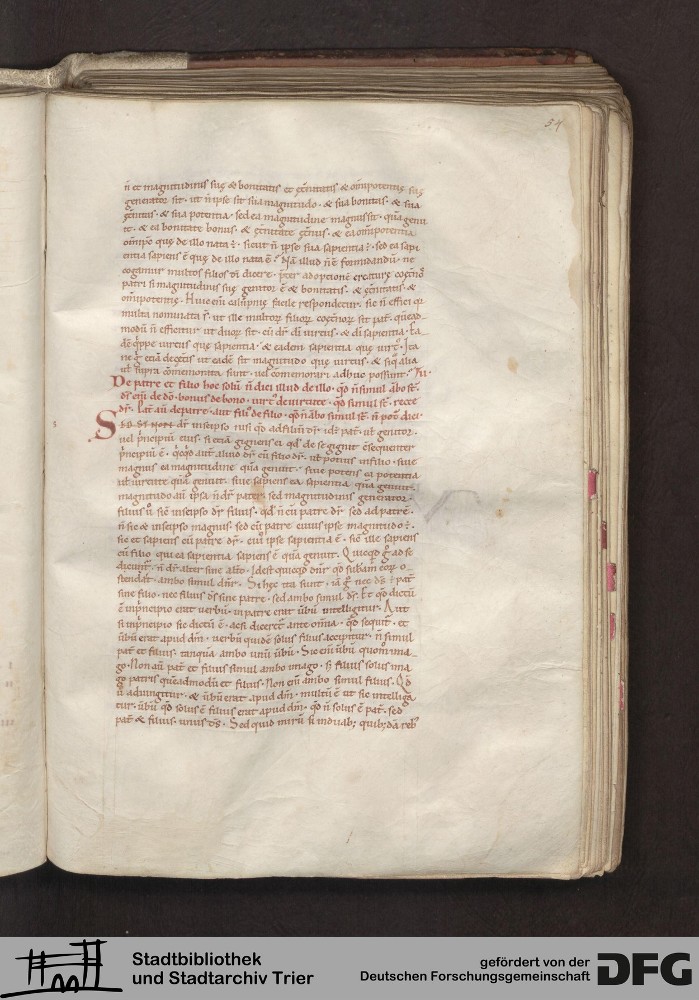 54
n̄ et magnitudinis suę & bonitatis et ęt̄nitatis & om̄ipotentię suę
generator sit. ut n̄ ipse sit sua magnitudo. & sua bonitas. & sua
ęt̄nitas. & sua potentia. sed ea magnitudine magnus sit. quā genu
it. & ea bonitate bonus. & ęt̄nitate ęt̄nus. & ea om̄ipotentia
om̄ip̄s quę de illo nata ÷. sicut n̄ ipse sua sapientia ÷. sed ea sapi
entia sapiens ē quę de illo nata ē. Nā illud n̄ ē formidandū. ne
cogamur multos filios dī dicere. p̄ter adoptionē creaturę coęt̄nos
patri si magnitudinis suę genitor ē & bonitatis. & ęt̄nitatis &
om̄ipotentię. Huic eni calūpnię facile respondetur. sic n̄ effici qr
multa nominata s̄. ut ille multorū filiorū coęt̄norū sit pat̄. quēad
modū n̄ efficitur ut duorū sit. cū dr̄ dī virtus. & dī sapientia. Ea
dē q̄ppe virtus quę sapientia. & eadem sapientia quę virt᷒. Ita
ne g̊ etiā de cęt̄is ut eadē sit magnitudo quę virtus. & siq̄ alia
ut supra cōmemorata sunt. vel cōmemorari adhuc possunt.
De patre et filio hoc solū n̄ dici illud de illo. qd̄ n̄ simul ābo st̄.
dr̄ eni dē de dō. bonus de bono. virt᷒ de virtute. qd̄ simul st̄. recte
dr̄. Pat̄ aū de patre. aut fili᷒ de filio. qd̄ n̄ ābo simul st̄. n̄ pot̄ dici.
SED SI NON dr̄ in seipso nisi qd̄ ad filiū dr̄. id ÷ pat̄. vl̄ genitor.
vel p̄ncipiū eius. si etiā gignens ei qd̄ de se gignit c̄sequenter
p̄ncipiū ē. quicqd̄ aut̄ aliud dr̄ cū filio dr̄. vl̄ potius in filio. sive
magnus ea magnitudine quā genuit. sive potens ea potentia
vl̄ virtute quā genuit. sive sapiens ea sapientia quā genuit.
magnitudo aū ipsa n̄ dr̄ pater. sed magnitudinis generator.
filius ū sic in seipso dr̄ filius. qd̄ n̄ cū patre dr̄. sed ad patrē.
n̄ sic & in seipso magnus. sed cū patre cuius ipse magnitudo ÷.
sic et sapiens cū patre dr̄. cui᷒ ipse sapientia ē. sic ille sapiens
cū filio qui ea sapientia sapiens ē quā genuit. Quicqd̄ g̊ ad se
dicunt̄. n̄ dr̄ alter sine alt̄o. Id est quicqd̄ dn̄r qd̄ subam̄ eorū o
stendat. ambo simul dn̄r. Si hęc ita sunt. iā g̊ nec dē ÷ pat̄
sine filio. nec filius dē sine patre. sed ambo simul dē. Et qd̄ dictū
ē in p̄ncipio erat verbū. in patre erat ūbū intelligitur. Aut
si in p̄ncipio sic dictū ē. acsi diceret̄ ante omnia. qd̄ sequit̄. et
ūbū erat apud dm̄. verbū quidē solus filius accipitur. n̄ simul
pat̄ et filius. tanquā ambo unū ūbū. Sic eni ūbū quom̊ ima
go. Non aū pat̄ et filius simul ambo imago. s; filius solus ima
go patris quēadmodū et filius. Non eni ambo simul filius. Qd̄
ū adiungitur. & ūbū erat apud dm̄. multū ē ut sic intelliga
tur. ūbū qd̄ solus ē filius erat apud dm̄. qd̄ n̄ solus ē pat̄. sed
pat̄ & filius. unus dē. Sed quid mirū si in duab; quib; dā reb᷒
Stadtbibliothek
und Stadtarchiv Trier
gefördert von der
Deutschen Forschungsgemeinschaft
DFG